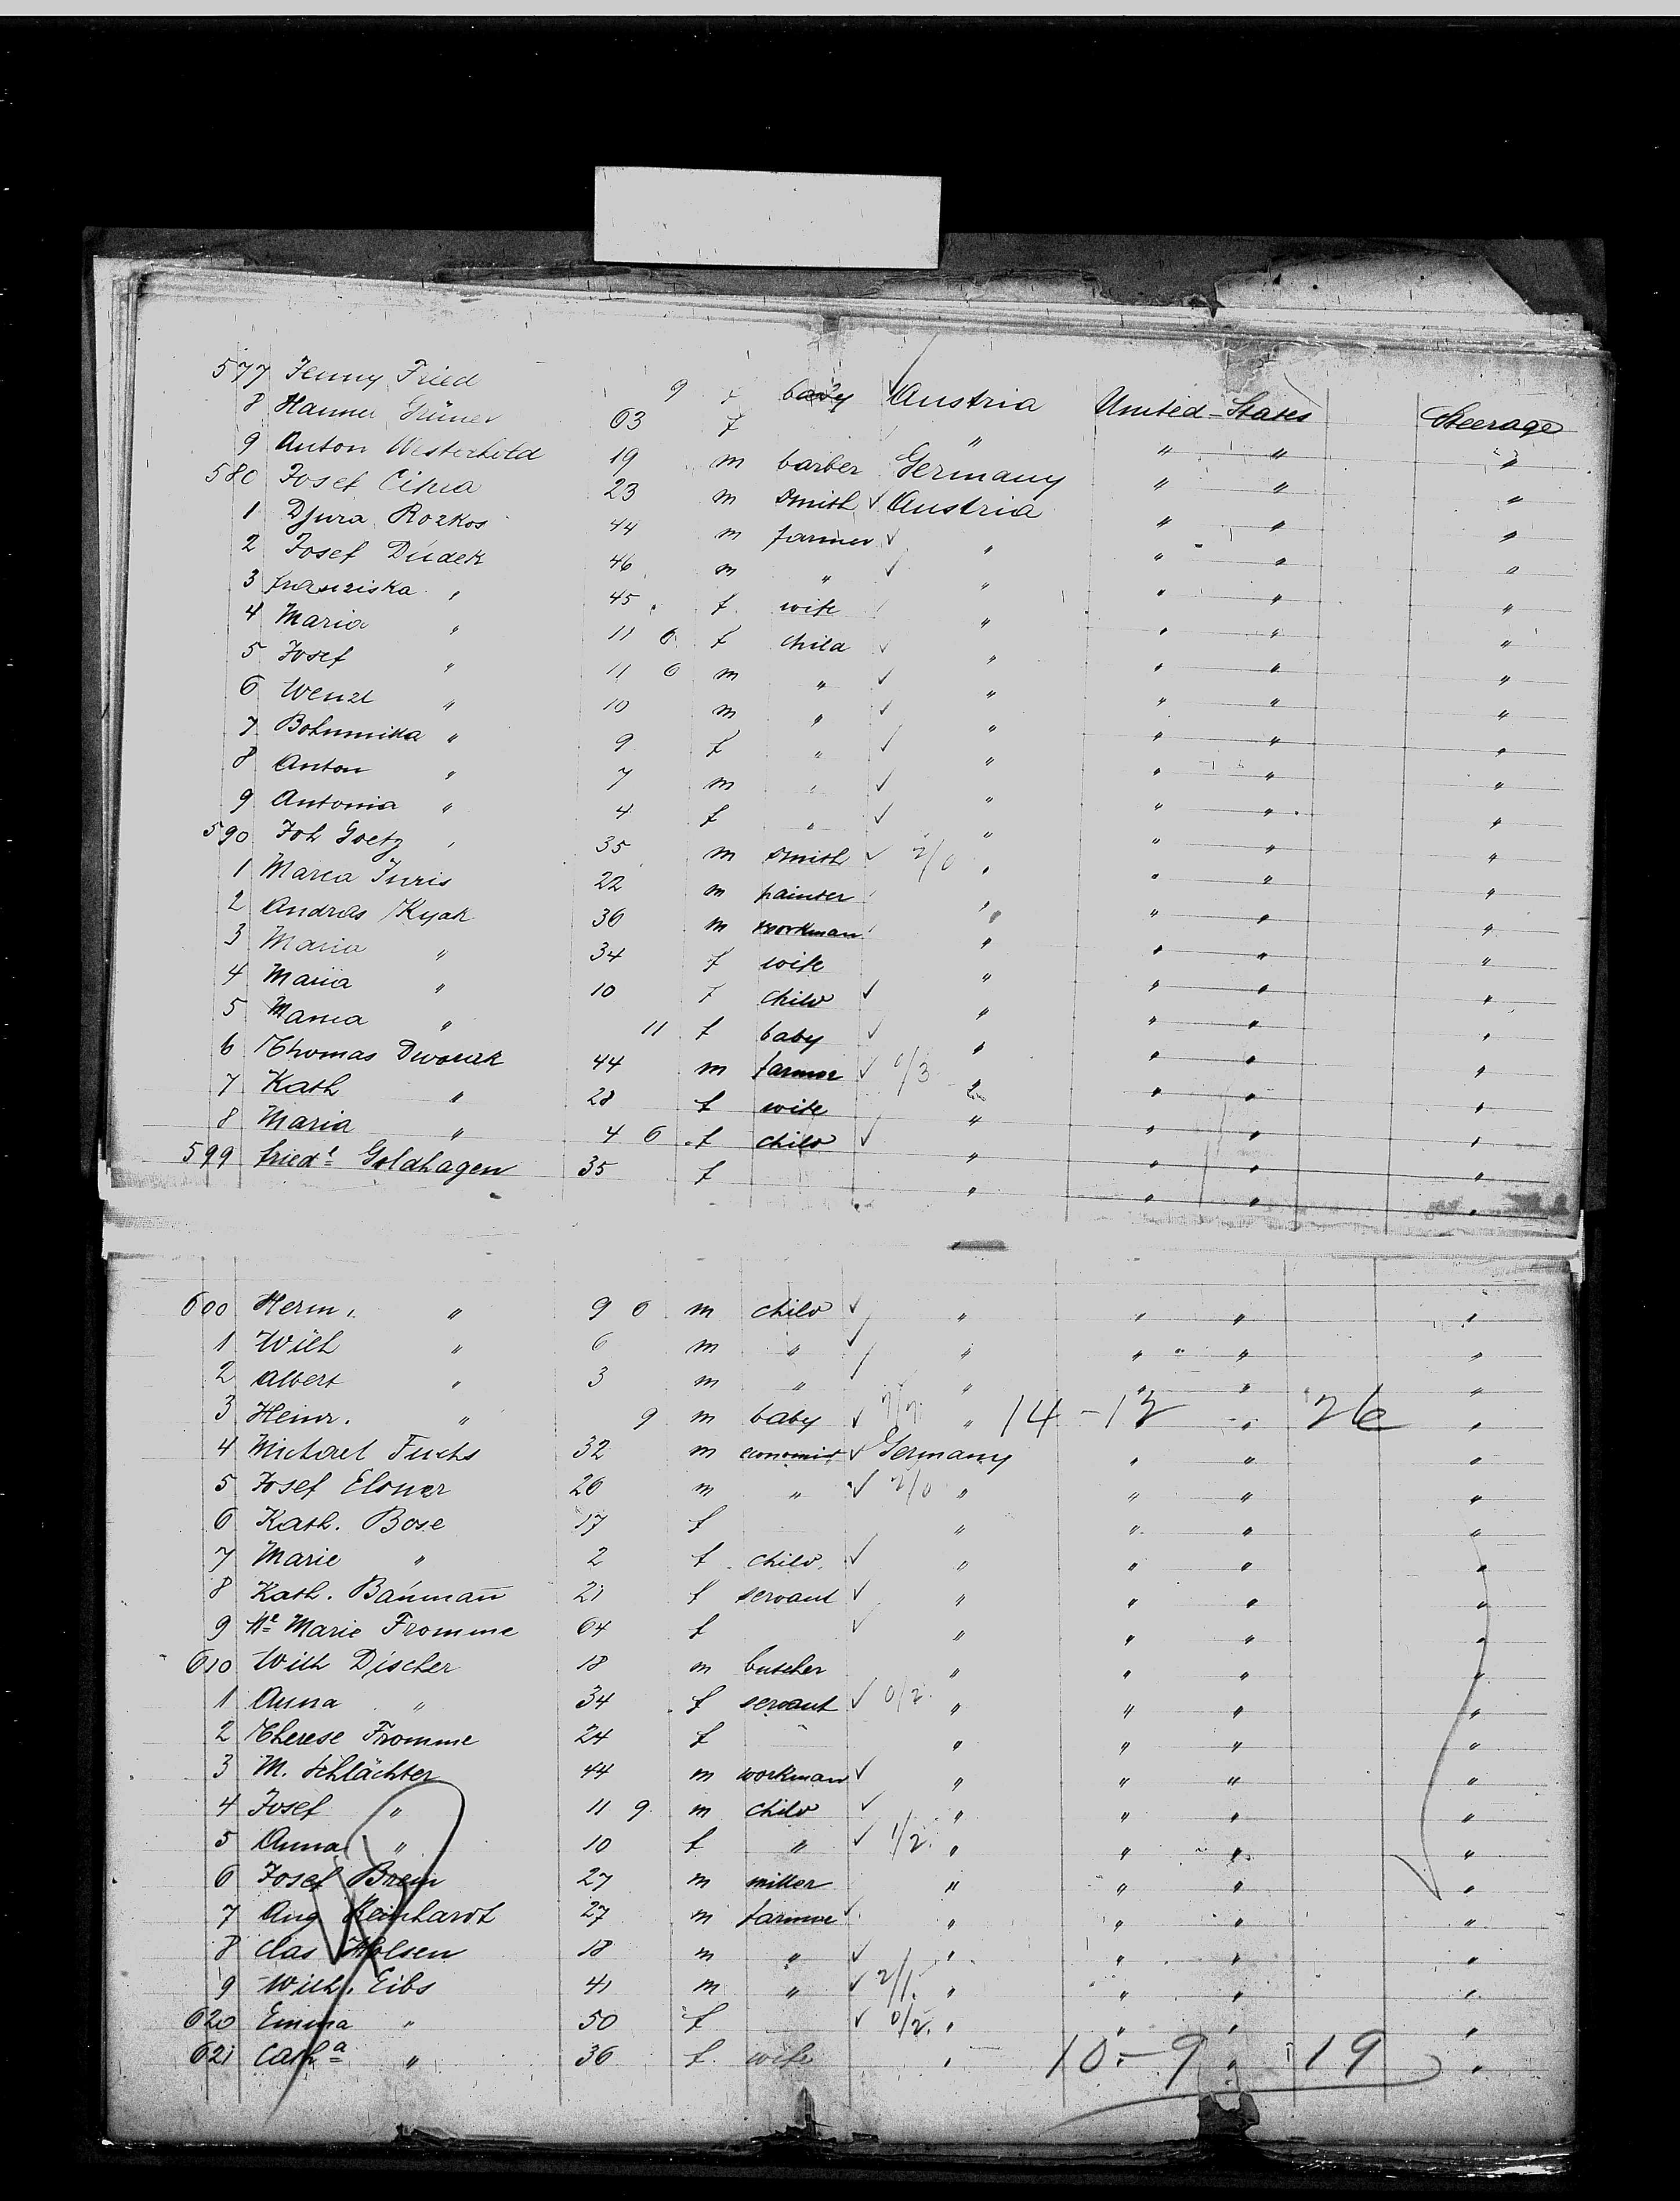 577 Jenny Fried 9 f baby ✓ Austria United States Steerage
8 Hanna Grüner 63 f " " " "
9 Anton Westerhold 19 m barber Germany " " "
580 Josef Cihra 23 m smith ✓ Austria " " "
1 Djura Rozkos 44 m farmer ✓ " " " "
2 Josef Dudek 46 m " ✓ " " " "
3 Franziska " 45 f wife " " " "
4 Maria " 11 6 f child ✓ " " " "
5 Josef " 11 6 m " ✓ " " " "
6 Wenzl " 10 m " ✓ " " " "
7 " 9 f " ✓ " " " "
8 Anton " 7 m " ✓ " " " "
9 Antonia " 4 f " ✓ " " " "
590 Joh Goetz 35 m smith ✓ 2/0 " " " "
1 Marca Juris 22 m painter " " " "
2 Andras Kyak 36 m workman " " " "
3 Maria " 34 f wife " " " "
4 Maria " 10 f child ✓ " " " "
5 " 11 f baby ✓ " " " "
6 Thomas Dworak 44 m farmer ✓ 0/3 " " " "
7 Kath " 28 f wife " " " "
8 Maria " 4 6 f child ✓ " " " "
599 Friede Goldhagen 35 f " " " "
600 Herm. " 9 6 m child ✓ " " " "
1 Wilh " 6 m " ✓ " " " "
2 Albert " 3 m " ✓ " " " "
3 Heinr. " 9 m baby ✓ " 14 - 12 " 26 "
4 Michael Fuchs 32 m economist ✓ Germany " " "
5 Josef Elsner 26 m " ✓ 2/0 " " " "
6 Kath. Bose 17 f " " " "
7 Marie " 2 f child ✓ " " " "
8 Kath. Baumañ 21 f servant ✓ " " " "
9 We Marie Fromme 64 f ✓ " " " "
610 Wilh Discher 18 m butcher " " " "
1 Anna " 34 f servant ✓ 0/2 " " " "
2 Therese Fromme 24 f " " " "
3 M. Schlächter 44 m workman ✓ " " " "
4 Josef " 11 9 m child ✓ " " " "
5 Anna " 10 f " ✓ 1/2 " " " "
6 Josef Brem 27 m miller " " " "
7 Aug Reinhardt 27 m farmer ✓ " " " "
8 Clas Holsen 18 m " ✓ " " " "
9 Wilh. Eibs 41 m " ✓ 2/1 " " " "
620 Emma " 50 f ✓ 0/2 " " " "
621 Catha " 36 f wife " 10 - 9 " 19 "